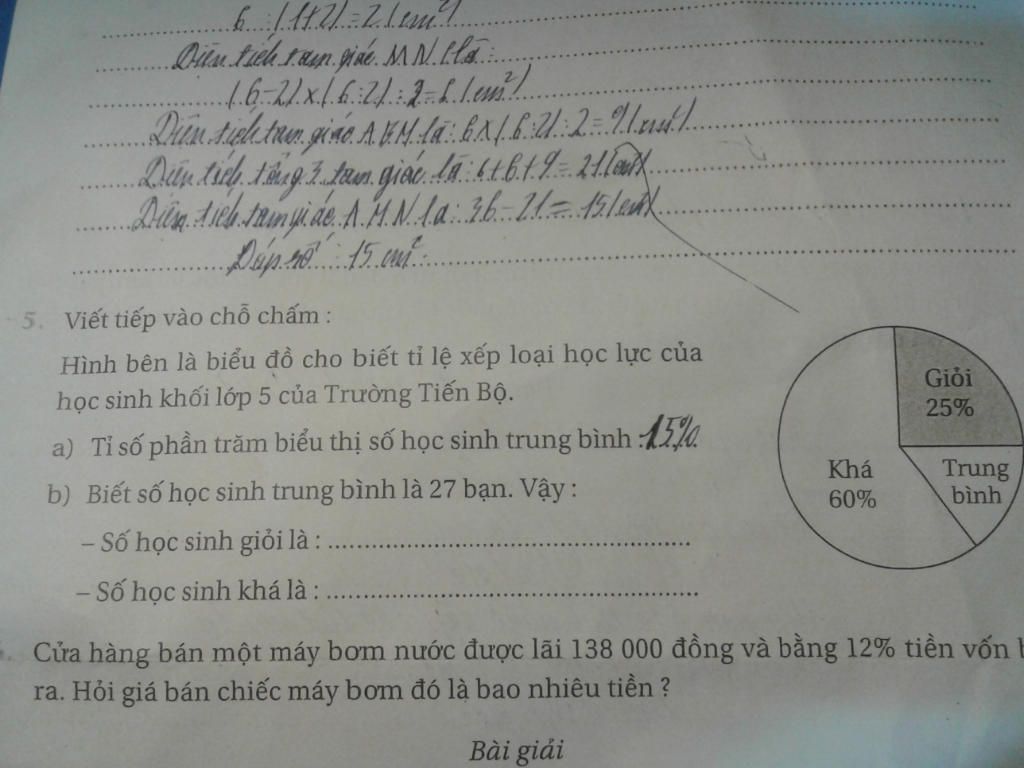 6 : (1+2) = 2 (cm²)
Diện tích tam giác MN là :
(6-2) x (6:2) : 2 = 6 (cm²)
Diện tích tam giác ABM là : 6 x (6:2) : 2 = 9 (cm²)
Diện tích tổng 3 tam giác là : 6+6+9 = 21 (cm²)
Diện tích tam giác AMN là : 36 - 21 = 15 (cm²)
Đáp số : 15 cm².
5. Viết tiếp vào chỗ chấm :
Hình bên là biểu đồ cho biết tỉ lệ xếp loại học lực của
học sinh khối lớp 5 của Trường Tiến Bộ.
a) Tỉ số phần trăm biểu thị số học sinh trung bình : 15%.
b) Biết số học sinh trung bình là 27 bạn. Vậy :
– Số học sinh giỏi là : ............................................................
– Số học sinh khá là : ............................................................
Giỏi
25%
Khá
60%
Trung
bình
Cửa hàng bán một máy bơm nước được lãi 138 000 đồng và bằng 12% tiền vốn
ra. Hỏi giá bán chiếc máy bơm đó là bao nhiêu tiền ?
Bài giải